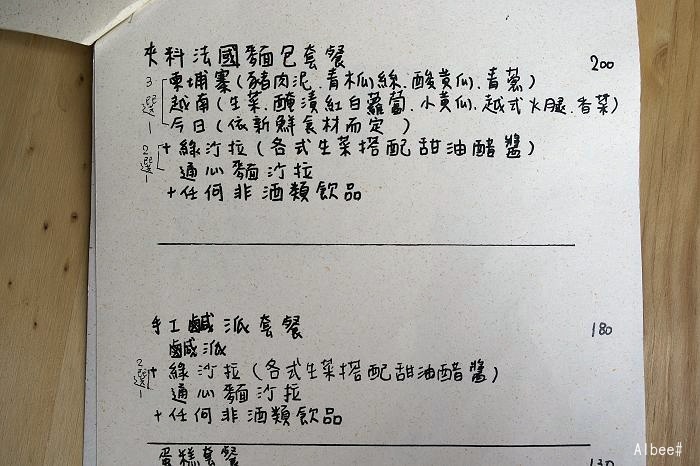 夾料法國麵包套餐 200
3選1 柬埔寨(豬肉泥.青木瓜絲.酸黃瓜.青蔥)
越南(生菜.醃漬紅白蘿蔔.小黃瓜.越式火腿.香菜)
今日(依新鮮食材而定)
2選1 +綠沙拉(各式生菜搭配甜油醋醬)
通心麵沙拉
+任何非酒類飲品
手工鹹派套餐 180
鹹派
2選1 +綠沙拉(各式生菜搭配甜油醋醬)
通心麵沙拉
+任何非酒類飲品
蛋糕套餐 130
Albee#